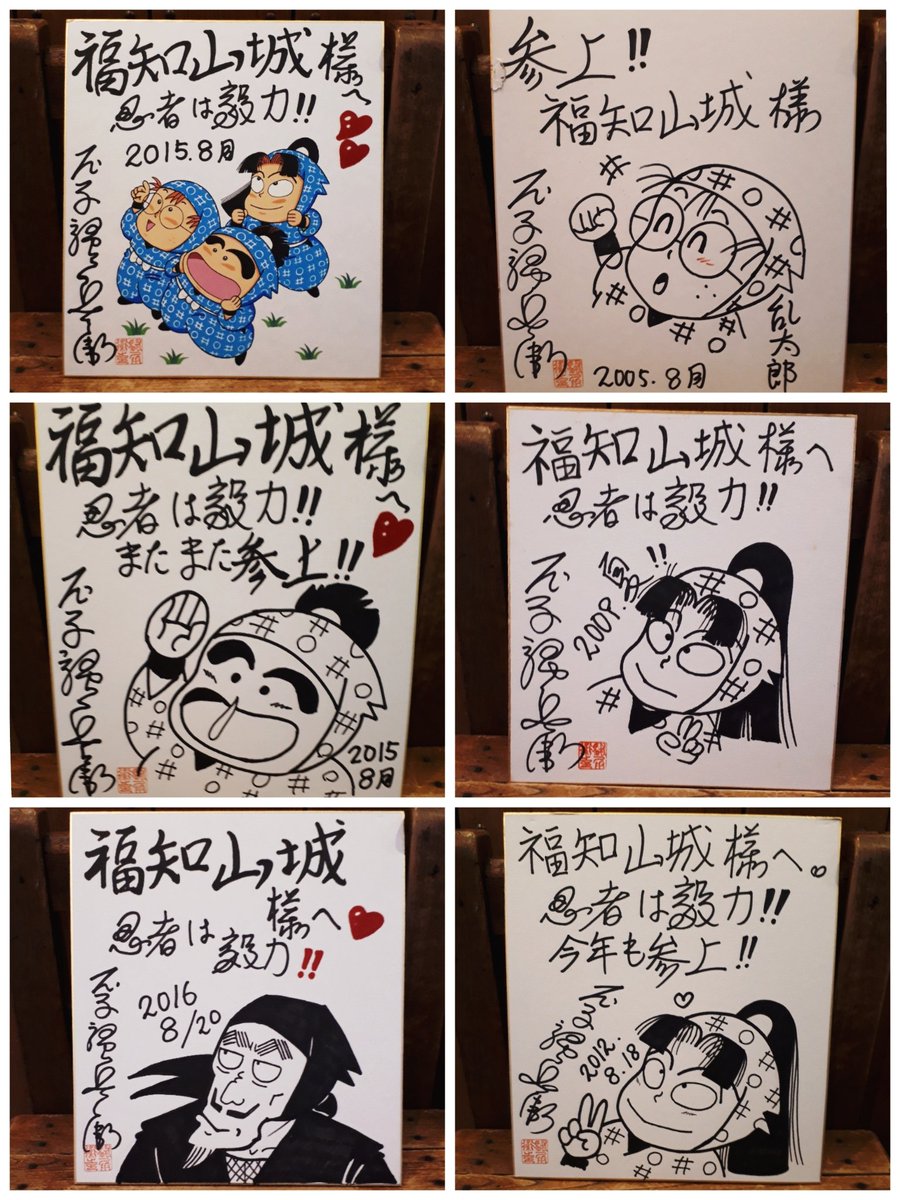 福知山城様へ
忍者は毅力!!
2015.8月
尼子騒兵衛
参上!!
福知山城様
尼子騒兵衛
乱太郎
2005.8月
福知山城様へ
忍者は毅力!!
またまた参上!!
尼子騒兵衛
2015
8月
福知山城様へ
忍者は毅力!!
尼子騒兵衛
2009.
福知山城
様へ
忍者は毅力!!
2016
8/20
尼子騒兵衛
福知山城様へ
忍者は毅力!!
今年も参上!!
尼子騒兵衛
2012.
8.18